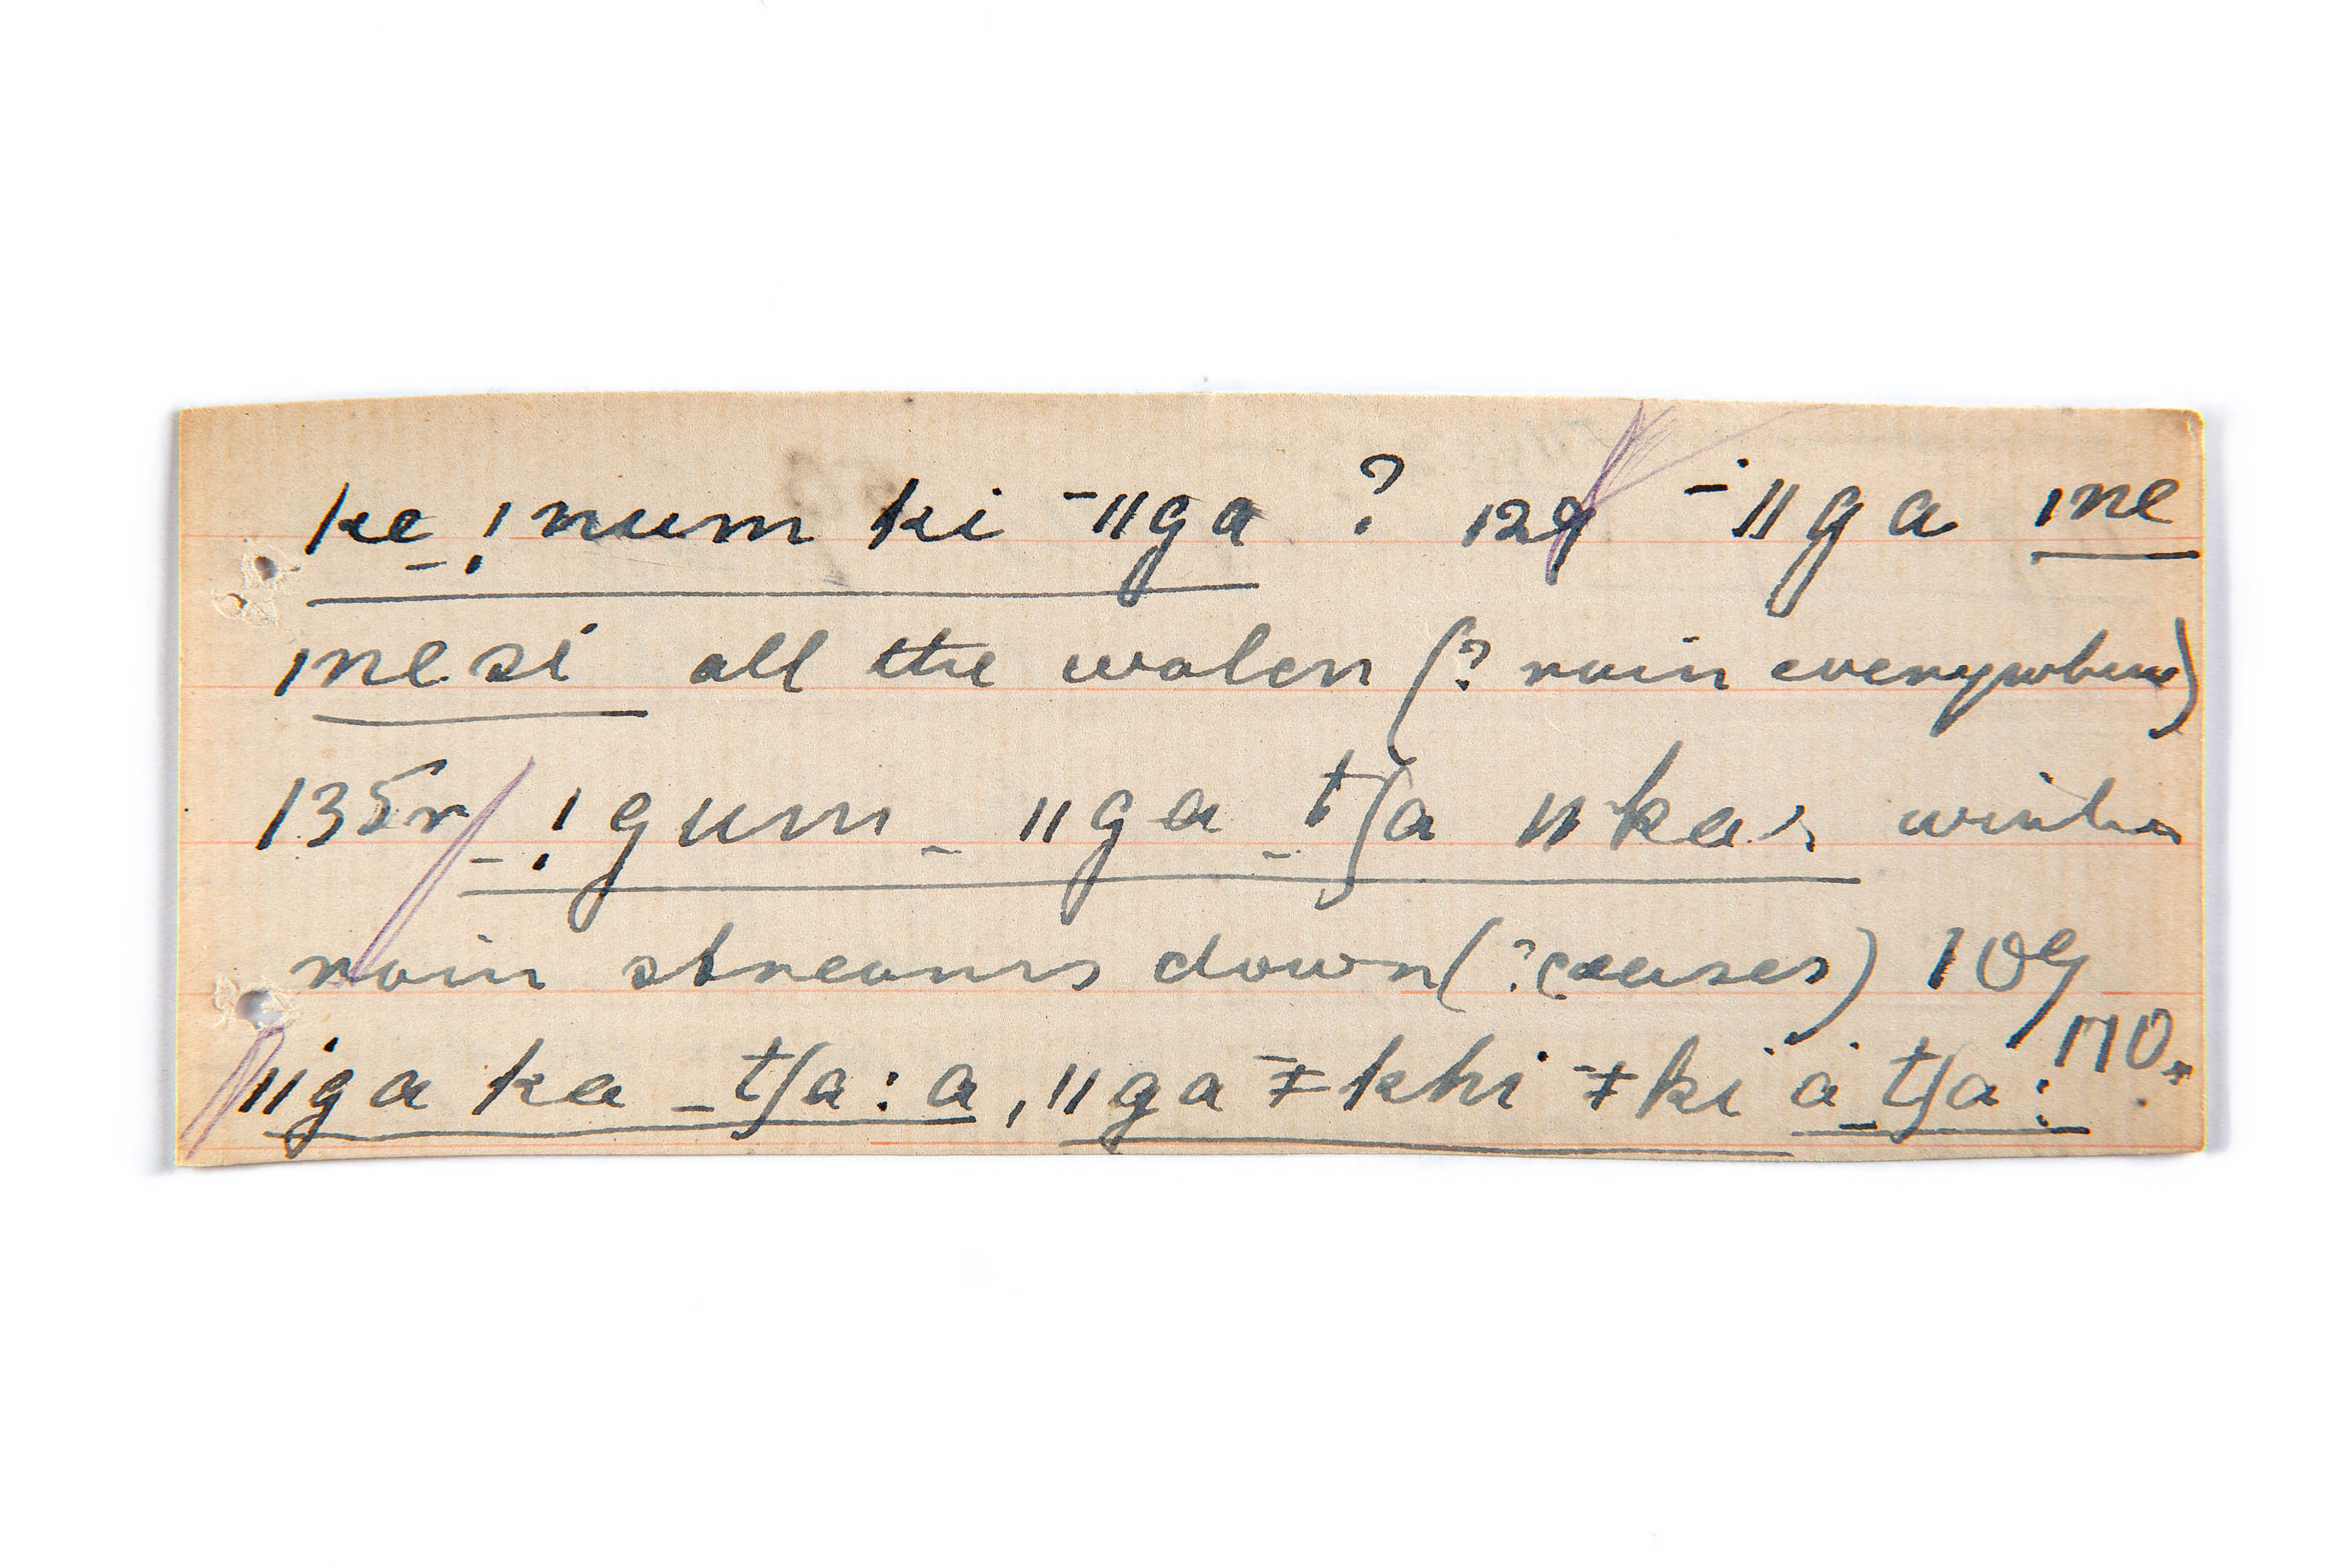 ke _ ǃnum ki ¯ǁga ? 129 ¯ǁga ǀne
ǀnesi all the water (? rain everywhere)
135r _ ǃgum _ ǁga _ tʃa ǁka winter
rain streams down (? ceases) 109
ǁga ka _tʃa:a, ǁga ¯ǂkhi ¯ǂki a _tʃa: 170.